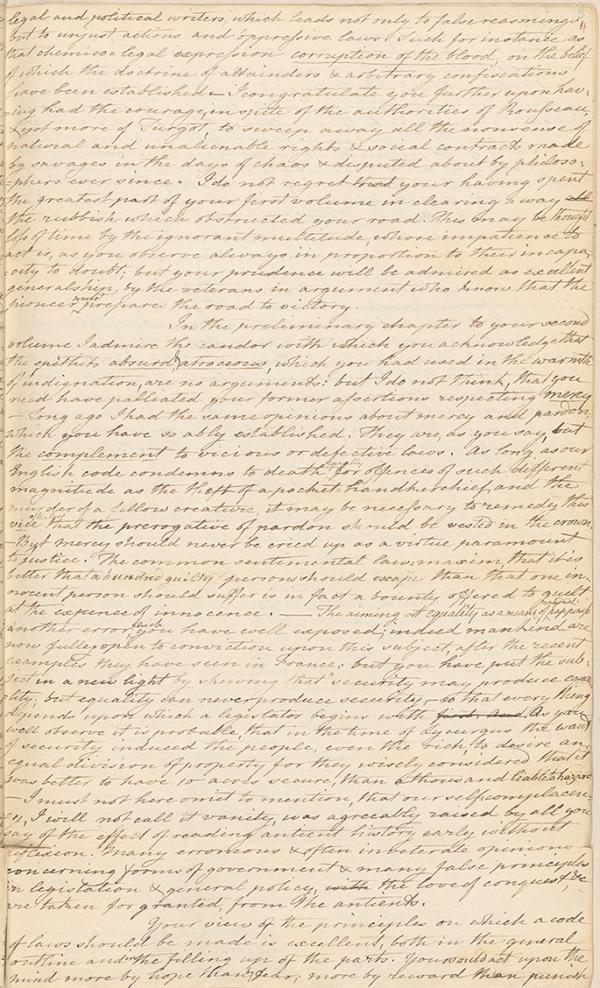 legal and political writers, which leads not only to false reasonings
but to unjust actions and oppressive laws. Such for instance as
that chemico-legal expression corruption of the blood, on the belief
of which the doctrine of attainders & arbitrary confiscations
have been established — I congratulate you further upon hav-
-ing had the courage, in spite of the authorities of Rousseau,
& yet more of Turgot, to sweep away all the nonsense of
natural and unalienable rights & social contracts made
by savages in the days of chaos & disputed about by philoso-
-phers ever since. I do not regret that your having spent
the greatest part of your first volume in clearing away all
the rubbish which obstructed your road. This may be thought
loss of time by the ignorant multitude, whose impatience to
act is, as you observe always in proportion to their incapa-
-city to doubt; but your prudence will be admired as excellent
generalship, by the veterans in argument who know that the
pioneer must prepare the road to victory.
In the preliminary chapter to your second
volume I admire the candor with which you acknowledge that
the epithets absurd & atrocious, which you had used in the warmth
of indignation, are no arguments: but I do not think, that you
need have palliated your former assertions respecting mercy
— Long ago I had the same opinions about mercy and pardon
which you have so ably established. They are, as you say, but
the complement to vicious or defective laws. As long as our
English code condemns to death equally for offences of such different
magnitude as the theft of a pocket handkerchief, and the
murder of a fellow creature, it may be necessary to remedy this
vice that the prerogative of pardon should be vested in the crown
— But mercy should never be cried up as a virtue paramount
to justice. The common sentimental law-maxim, that it is
better that a hundred guilty persons should escape than that one in-
nocent person should suffer is in fact a bounty offered to guilt
at the expence of innocence. — The aiming at equality, as a means of
another error, which you have well exposed; indeed mankind are
now fully open to conviction upon this subject, after the recent
examples they have seen in France: but you have put the sub-
-ject in a new light by shewing that "security may produce equa-
-lity; but equality can never produce security, — so that every thing
depends upon which a legislator begins with As you
well observe it is probable, that in the time of Lycurgus the want
of security induced the people, even the rich to desire an
equal division of property for they wisely considered that it
was better to have 10 acres secure, than a thousand liable to hazard
I must not here omit to mention, that our self complacen-
-cy, I will not call it vanity, was agreeably raised by all you
say of the effect of reading antient history early without
reflexion. Many erroneous & often inveterate opinions
concerning forms of government & many false principles
in legislation & general policy, with the love of conquest, &c
are taken for granted, from the antients.
Your view of the principles on which a code
of laws should be made is excellent, both in the general
outline and in the filling up of the parts. You would act upon the
mind more by hope than fear; more by reward than punish